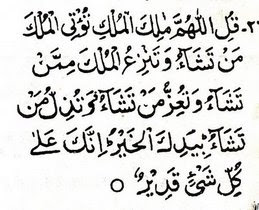 ٢٦- قُلِ اللّٰهُمَّ مٰلِكَ الْمُلْكِ تُؤْتِي الْمُلْكَ
مَنْ تَشَآءُ وَتَنْزِعُ الْمُلْكَ مِمَّنْ
تَشَآءُ وَتُعِزُّ مَنْ تَشَآءُ وَتُذِلُّ مَنْ
تَشَآءُ بِيَدِكَ الْخَيْرُ اِنَّكَ عَلٰى
كُلِّ شَيْءٍ قَدِيْرٌ ○